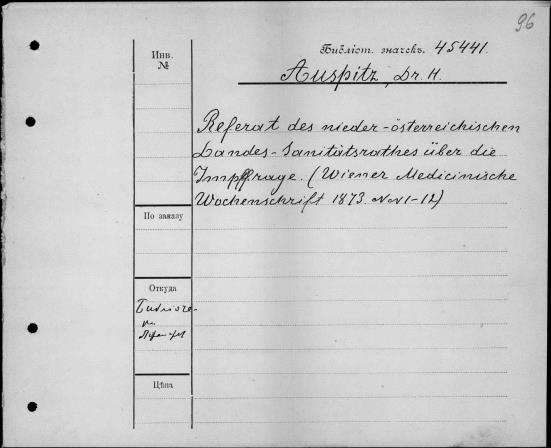 96
Библіот. значекъ. 45441.
Инв.
№
Auspitz, Dr. H.
Referat des nieder-österreichischen
Landes-Sanitätsrathes über die
Impffrage. (Wiener Medicinische
Wochenschrift 1873. NoN 1-12)
По заказу
Откуда
Цѣна